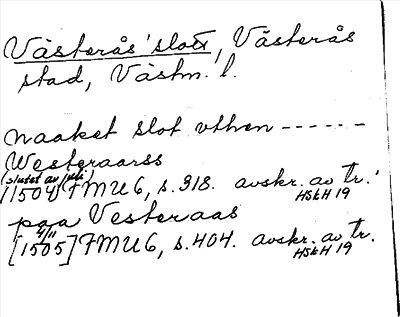 Västerås slott, Västerås
stad, Västm. l.
naaket slot vthen ------
Westeraarss
(slutet av juli)
(1504) FMU 6, s. 318. avskr. av tr.
HSkH 19
paa Vesteraas
4/11
[1505] FMU 6, s. 404. avskr. av tr.
HSkH 19